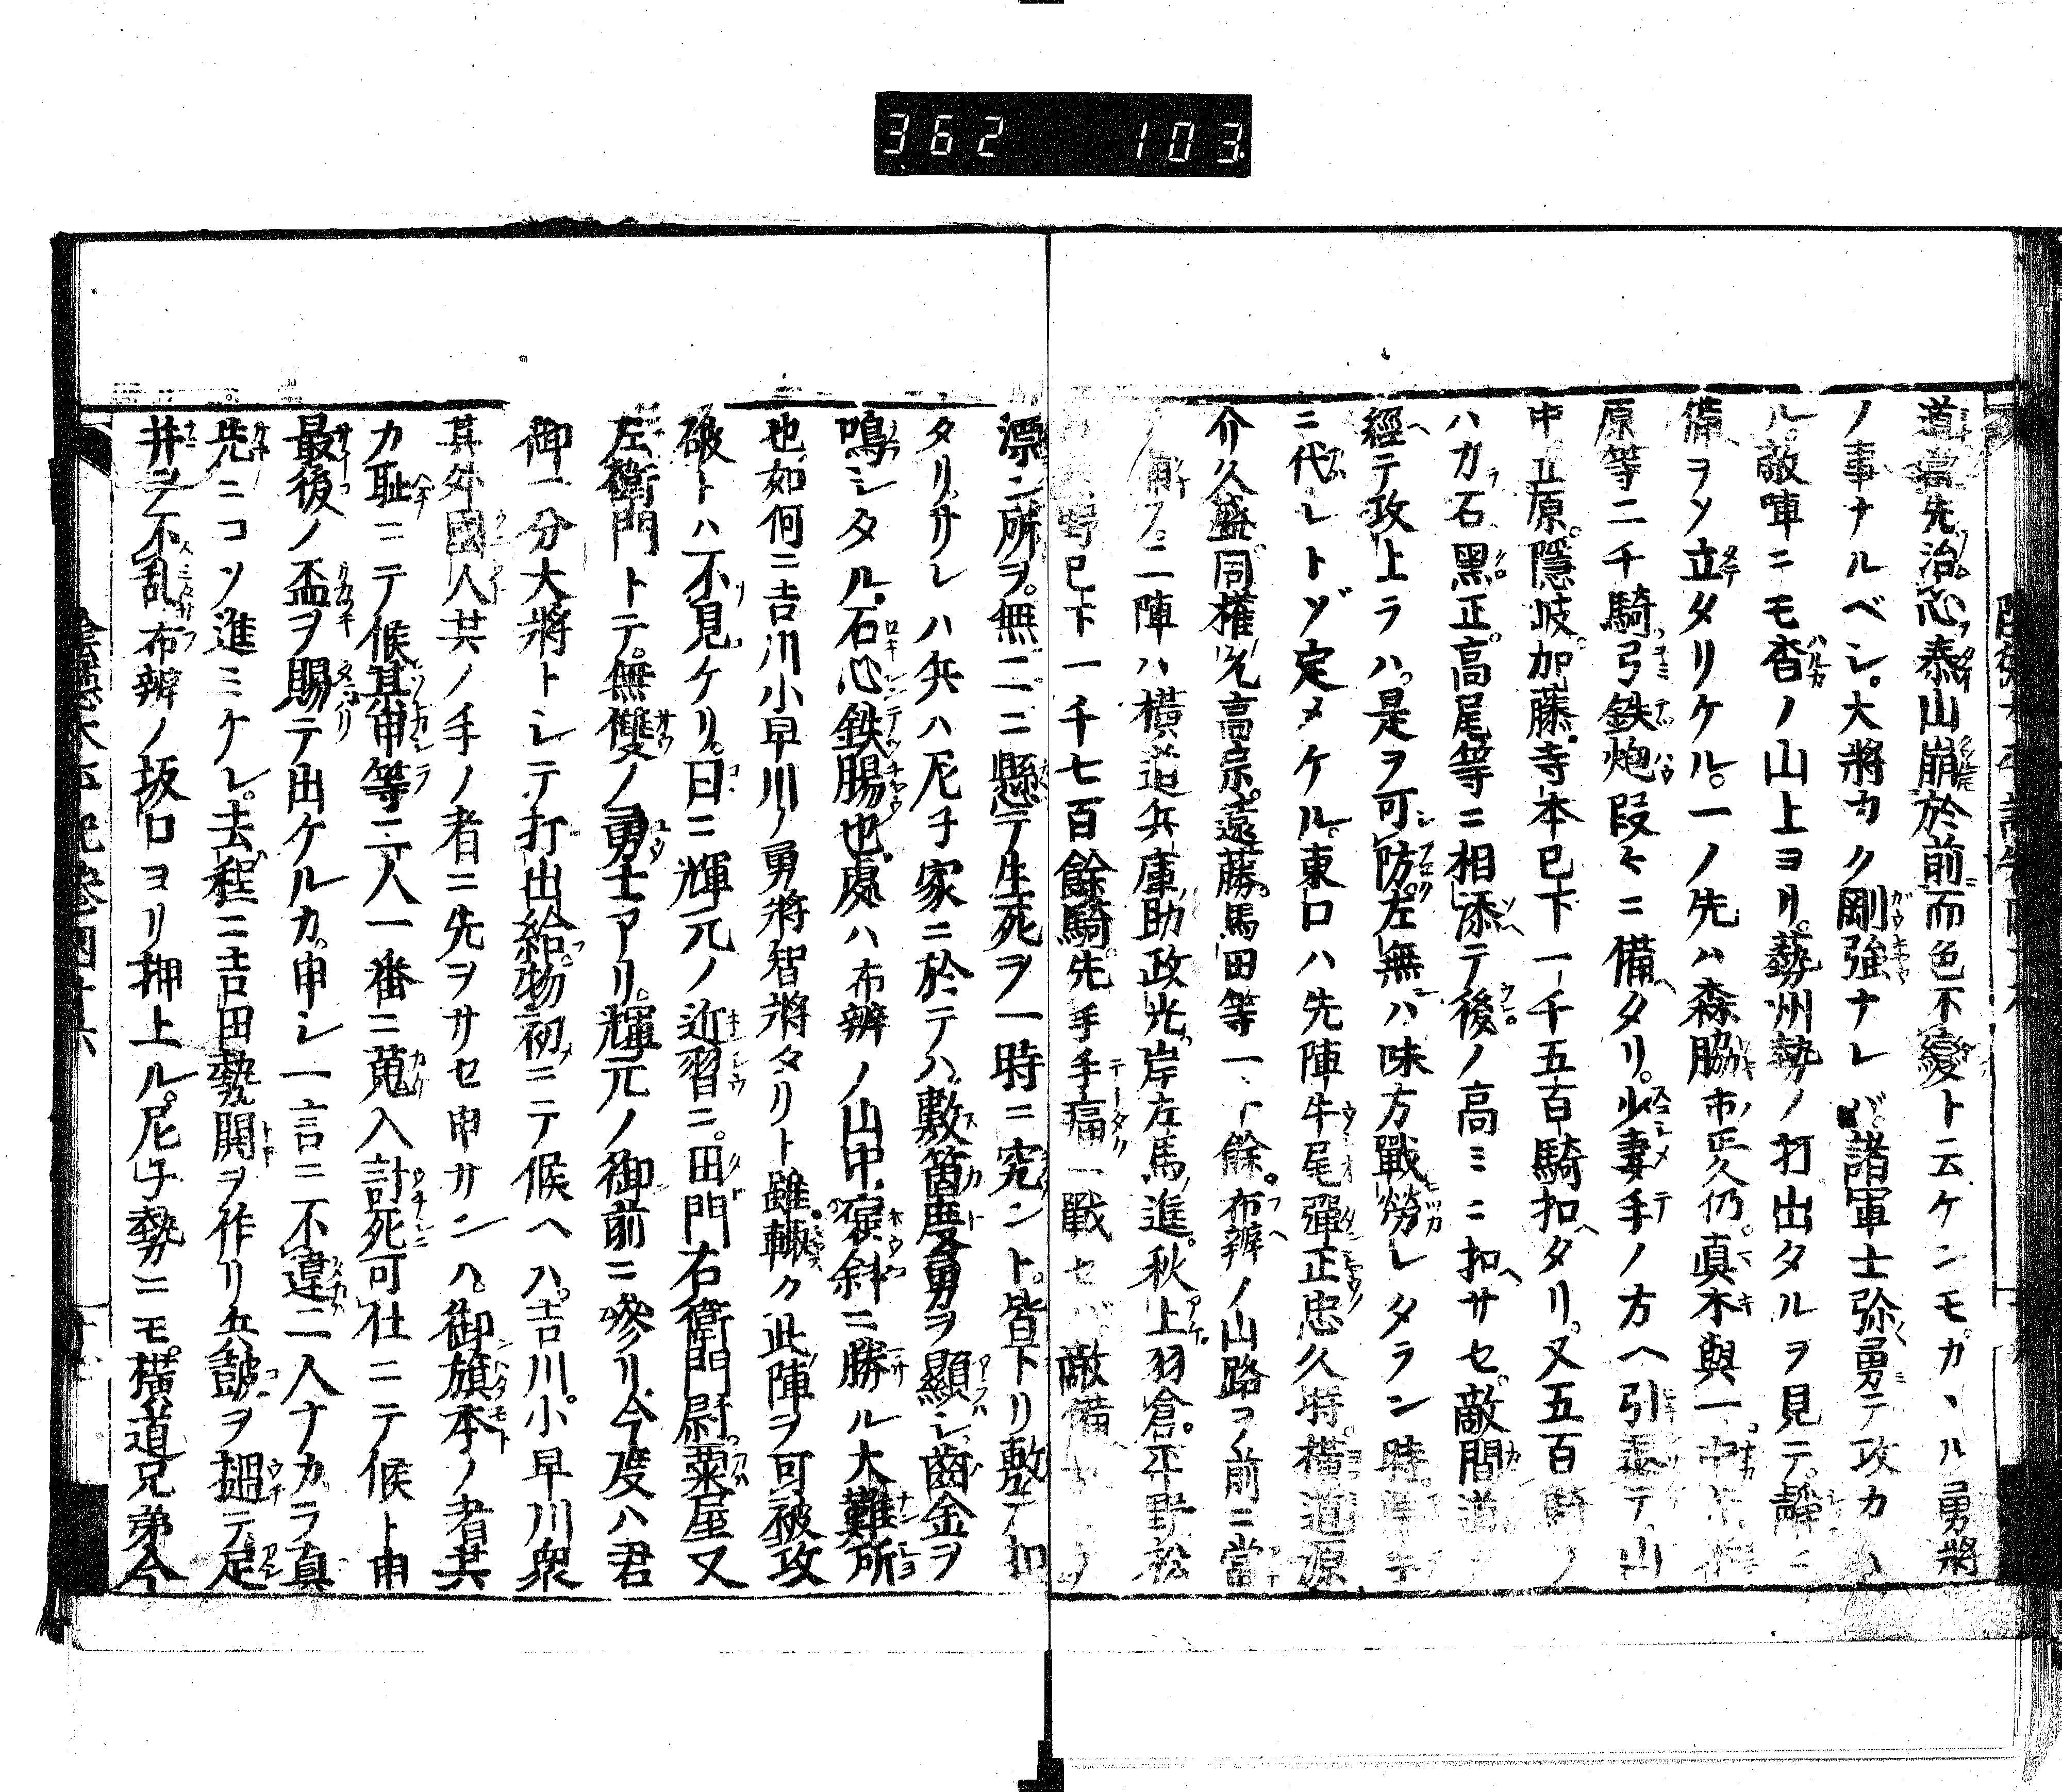 362 103
道當先治心泰山崩於前而色不變ト云ケンモカヽル勇將
ノ事ナルベシ。大將カク剛強ナレバ諸軍士弥勇テ攻カヽ
ル。敵陣ニモ杳ノ山上ヨリ。藝州勢ノ打出タルヲ見テ。靜ニ
備ヲソ立タリケル。一ノ先ハ森脇市正久仍。真木與一。中
原等二千騎弓鉄炮段々ニ備タリ。少妻手ノ方ヘ引テ。山
中。立原。隱岐。加藤。寺本已下一千五百騎扣タリ。又五百騎ノ
ハカ石黑正。高尾等ニ相添テ後ノ高ミニ扣サセ。敵間道
經テ攻上ラハ。是ヲ可防。左無ハ味方戰勞レタラン時。
ニ代レトゾ定メケル。東口ハ先陣牛尾彈正忠久時。橫道源
介久盛。同權允高宗。遠藤。馬田等一千餘。布辨ノ山路ヲ前ニ當
二陣ハ橫道兵庫助政光。岸左馬進。秋上。羽倉。平野。松
野已下一千七百餘騎。先手手痛一戰セバ敵備
漂ン所ヲ。無二ニ懸テ生死ヲ一時ニ究ント。皆下リ敷テ扣
タリ。サレハ兵ハ尼子家ニ於テハ數箇度勇ヲ顯シ。齒金ヲ
鳴シタル。石心鉄腸也。處ハ布辨ノ山中。褒斜ニ勝ル大難所
也。如何ニ吉川小早川ノ勇將智將タリト雖。輙ク此陣ヲ可被攻
破トハ不見ケリ。曰ニ輝元ノ近習ニ。田門右衛門尉。粟屋又
左衛門トテ。無雙ノ勇士アリ。輝元ノ御前ニ參リ。今度ハ君
御一分大將トシテ打出給物初ニテ候ヘハ。吉川。小早川衆
其外國人共ノ手ノ者ニ先ヲサセ申サンハ。御旗本ノ者共
カ恥ニテ候。某甲等二人一番ニ蒐入討死可仕ニテ候ト申
最後ノ盃ヲ賜テ出ケルカ。申シ一言ニ不違二人ナカラ真
先ニコソ進ミケレ。去程ニ吉田勢鬨ヲ作リ兵鼓ヲ搥テ。足
井ヲ不乱布辨ノ坂口ヨリ押上ル。尼子勢ニモ。橫道兄弟今